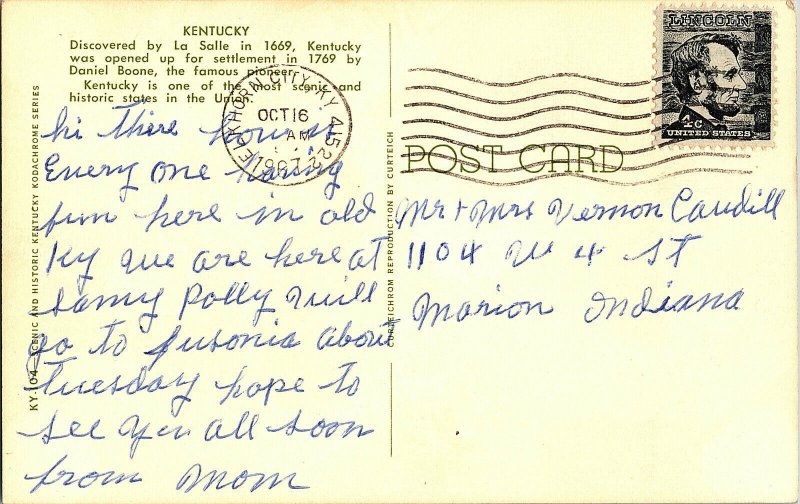 KENTUCKY
Discovered by La Salle in 1669, Kentucky
was opened up for settlement in 1769 by
Daniel Boone, the famous pioneer.
Kentucky is one of the most scenic and
historic states in the Union.
hi there how is
Every one having
fun here in old
Ky we are here at
Samy Polly will
go to Jusonia about
Tuesday hope to
see you all soon
from Mom
KY-104—SCENIC AND HISTORIC KENTUCKY KODACHROME SERIES
CURTEICHROM REPRODUCTION BY CURTEICH
ELKHORN CITY, KY 41522
OCT 16
AM
1967
LINCOLN
4c
UNITED STATES
POST CARD
Mr + Mrs Vernon Caudill
1104 W 4 St
Marion Indiana